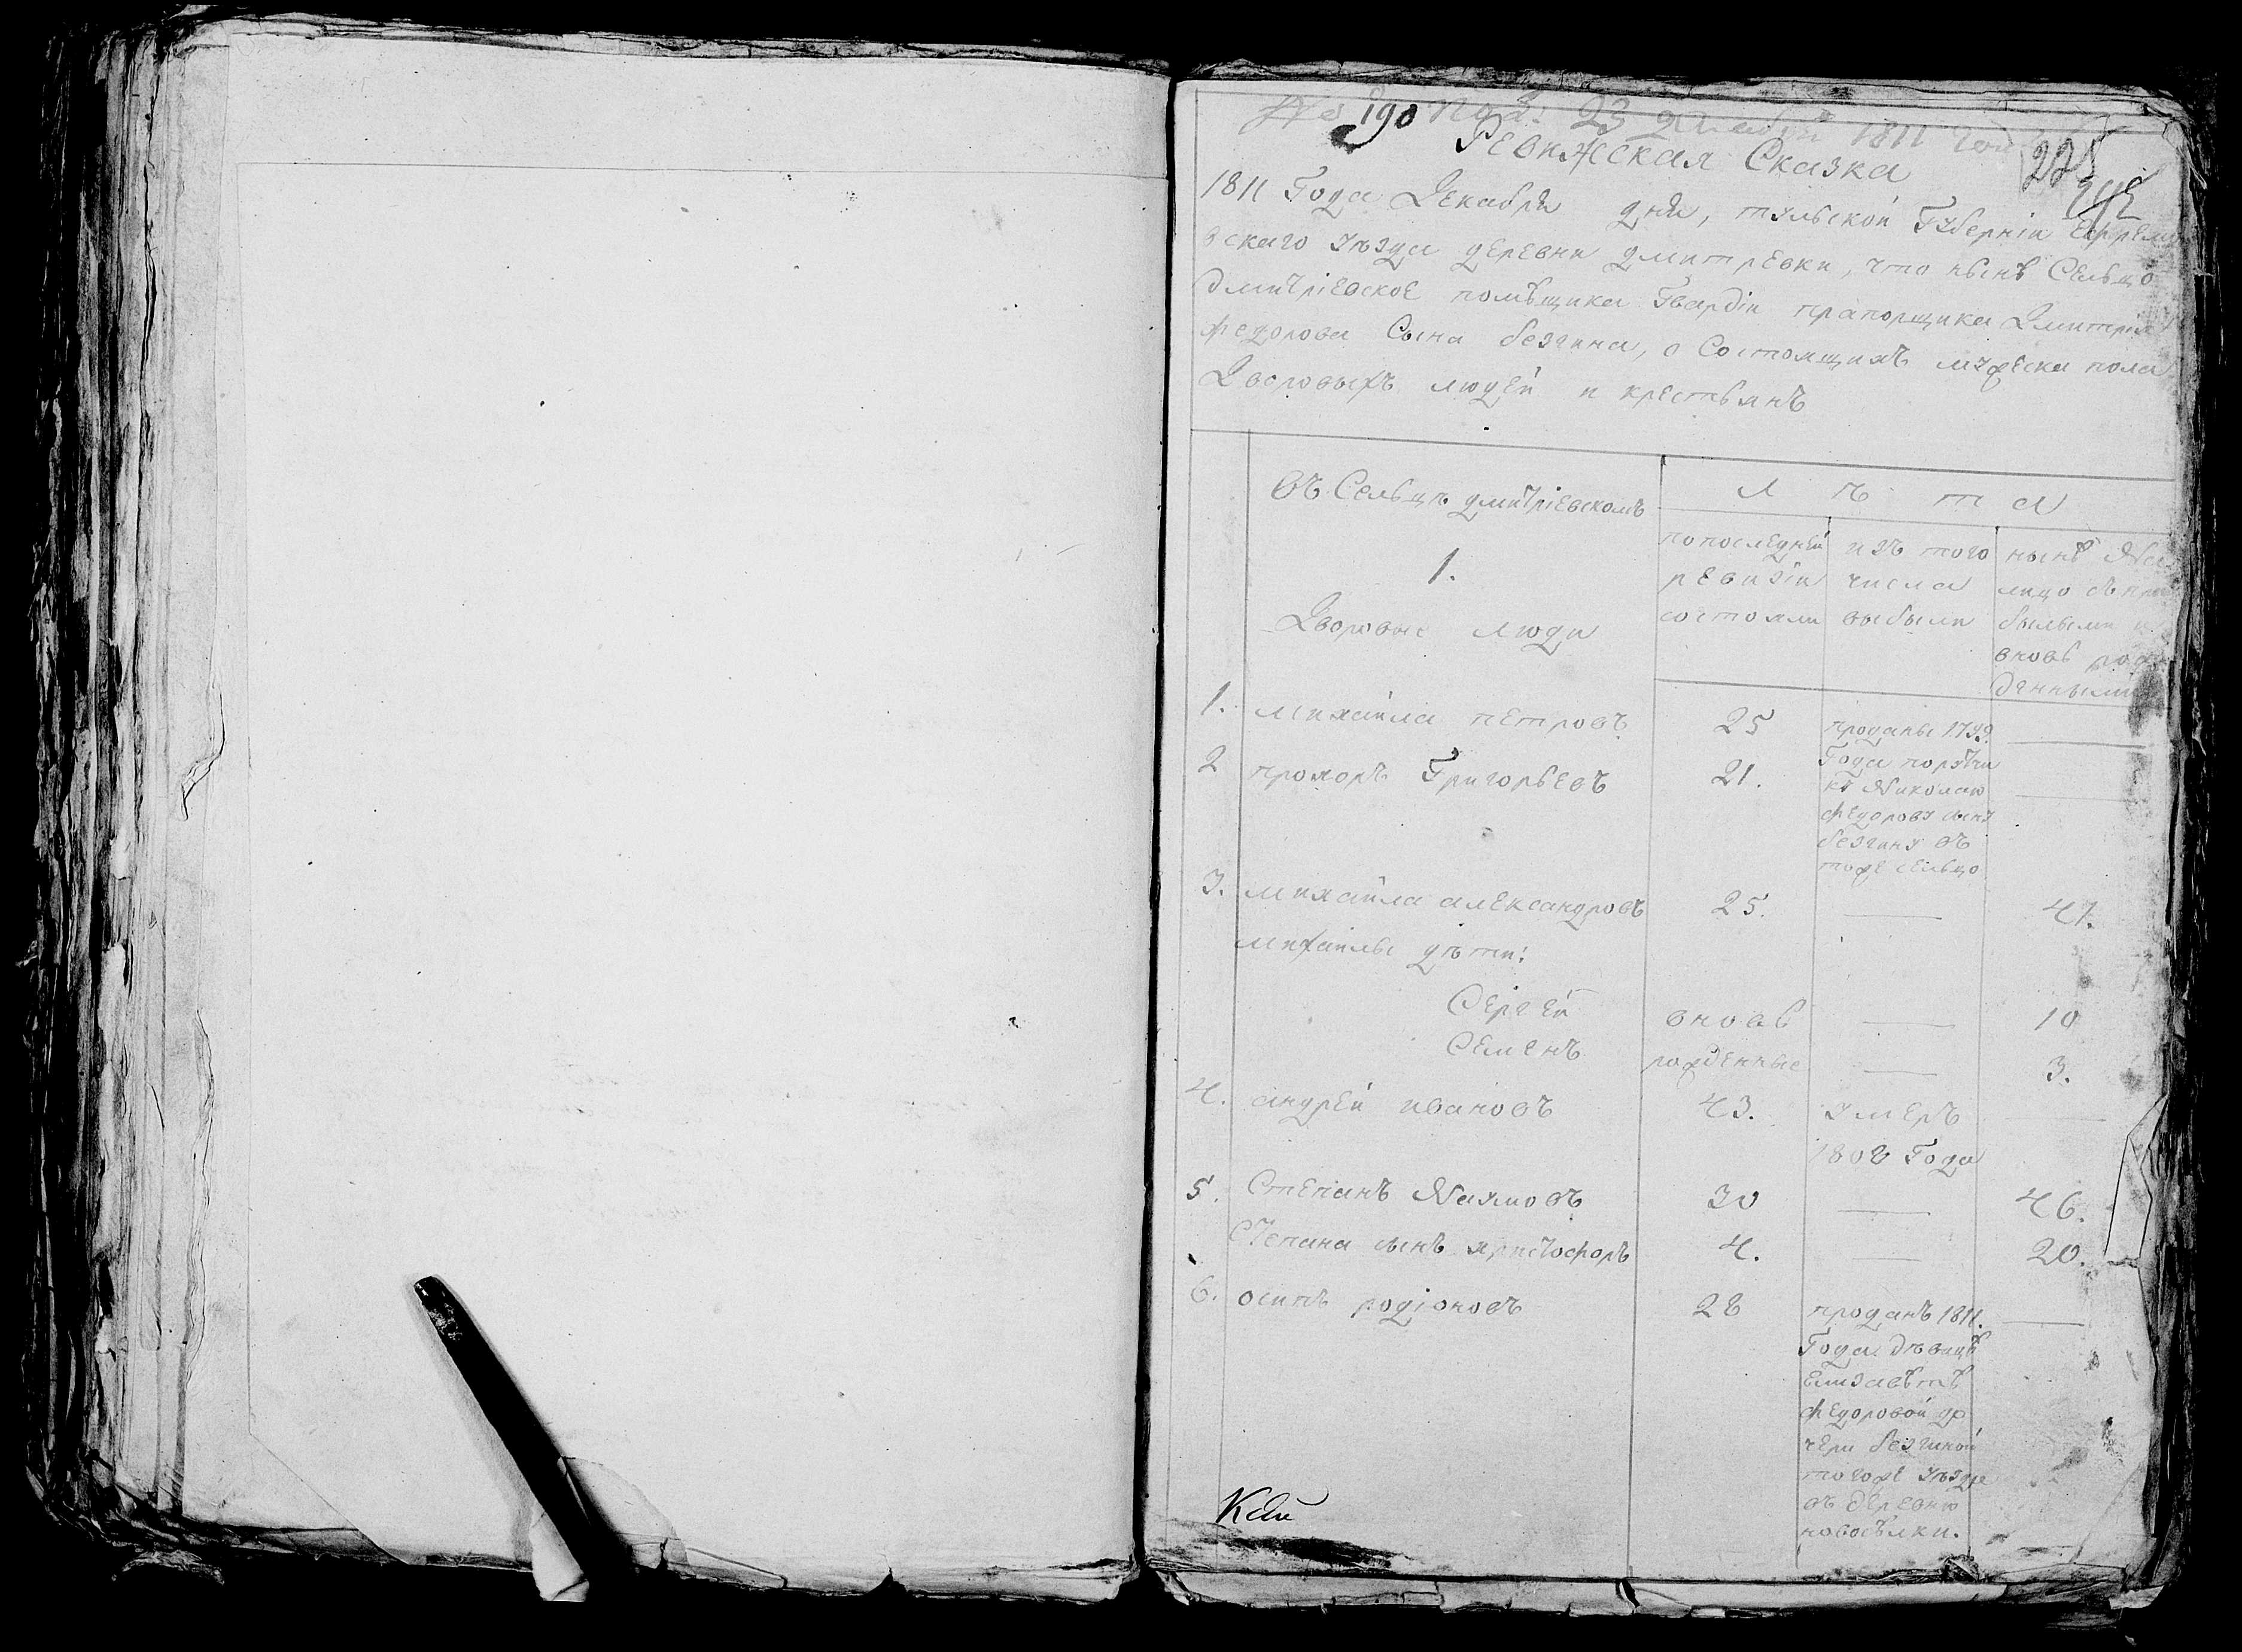 № 190 Под: 23 Декабря 1811 Года
Ревижская Сказка
225
1811 Года Декабря дня, тульской Губернiи Ефремо
вскаго уѣзда деревни дмитревки, что нынѣ Сельцо
Дмитрiевское помѣщика Гвардiи прапорщика Дмитрiя
федорова Сына безгина, о Состоящихъ мужеска пола
Дворовыхъ людей и крестьянъ
Въ Сельцѣ дмитрiевскомъ
Л ѣ т а
по последней ревизiи состояли
изъ того числа выбыли
нынѣ На лицо съ при былыми и вновь рож денными
1.
Дворовые люди
1. михайла петровъ 25 проданы 1799.
Года порутчи
2 прохоръ Григорьевъ 21. къ Николаю
федорову сыну
безгину въ
тоже сельцо
3. михайла александровъ 25. 41.
михайлы дѣти:
Сергей вновь 10
Семенъ рожденные 3.
4. андрей ивановъ 43. умеръ
1808 Года
5. Степанъ Наумовъ 30 46.
Степана сынъ христофоръ 4. 20.
6. осипъ родiоновъ 28 проданъ 1811.
Года дѣвице
Елизаветѣ
федоровой до
чери безгиной
тогоже уѣзда
въ деревню
новосѣлки.